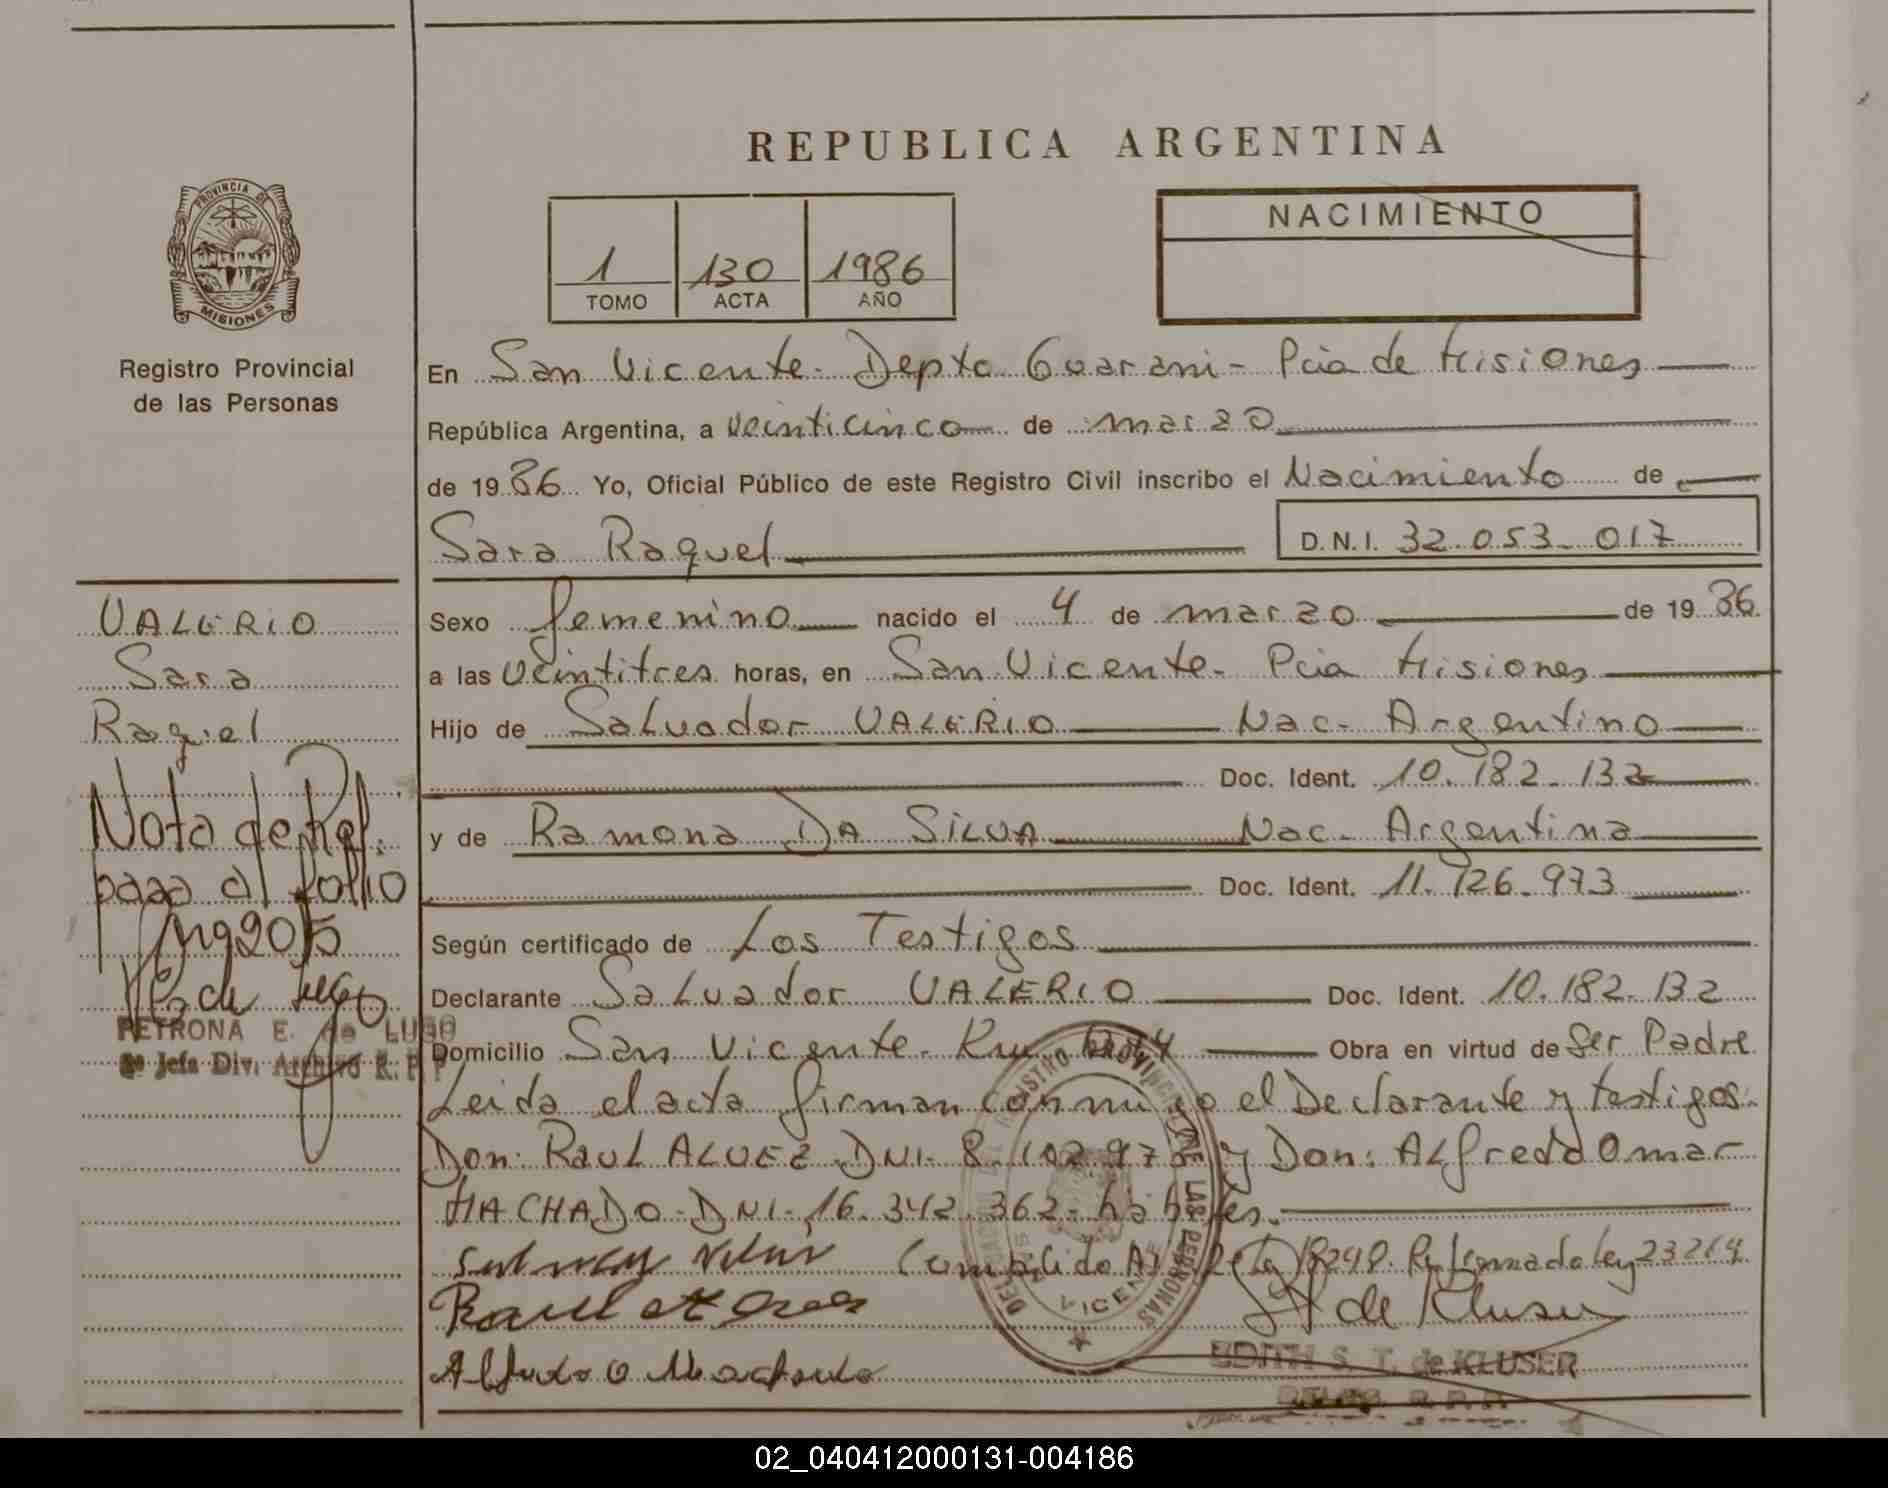 REPUBLICA ARGENTINA
PROVINCIA DE
MISIONES
Registro Provincial
de las Personas
1 130 1986
TOMO ACTA AÑO
NACIMIENTO
En San Vicente - Depto Guarani - Pcia de Misiones
República Argentina, a veinticinco de marzo
de 1986 Yo, Oficial Público de este Registro Civil inscribo el Nacimiento de
Sara Raquel
D.N.I. 32.053.017
VALERIO
Sara
Raquel
Nota de Ref.
pasa al folio
Nº 205
PETRONA E. de LUGO
2ª Jefa Div. Archivo R.P.P
Sexo femenino nacido el 4 de marzo de 1986
a las Veintitres horas, en San Vicente - Pcia Misiones
Hijo de Salvador VALERIO Nac - Argentino
Doc. Ident. 10.182.132
y de Ramona DA SILVA Nac - Argentina
Doc. Ident. 11.726.973
Según certificado de Los Testigos
Declarante Salvador VALERIO Doc. Ident. 10.182.132
Domicilio San Vicente - Obra en virtud de Ser Padre
Leida el acta firman conmigo el Declarante y testigos:
Don: RAUL ALVEZ DNI - 8. y Don: Alfredo Omar
MACHADO - DNI - 16.342.362 - habiles.
Cumplido 18248. Reformada ley 23264.
Alfredo O Machado
de Kluser
EDITH S. T. de KLUSER
DELEGACION DEL REGISTRO PROVINCIAL DE LAS PERSONAS
SAN VICENTE
02_040412000131-004186